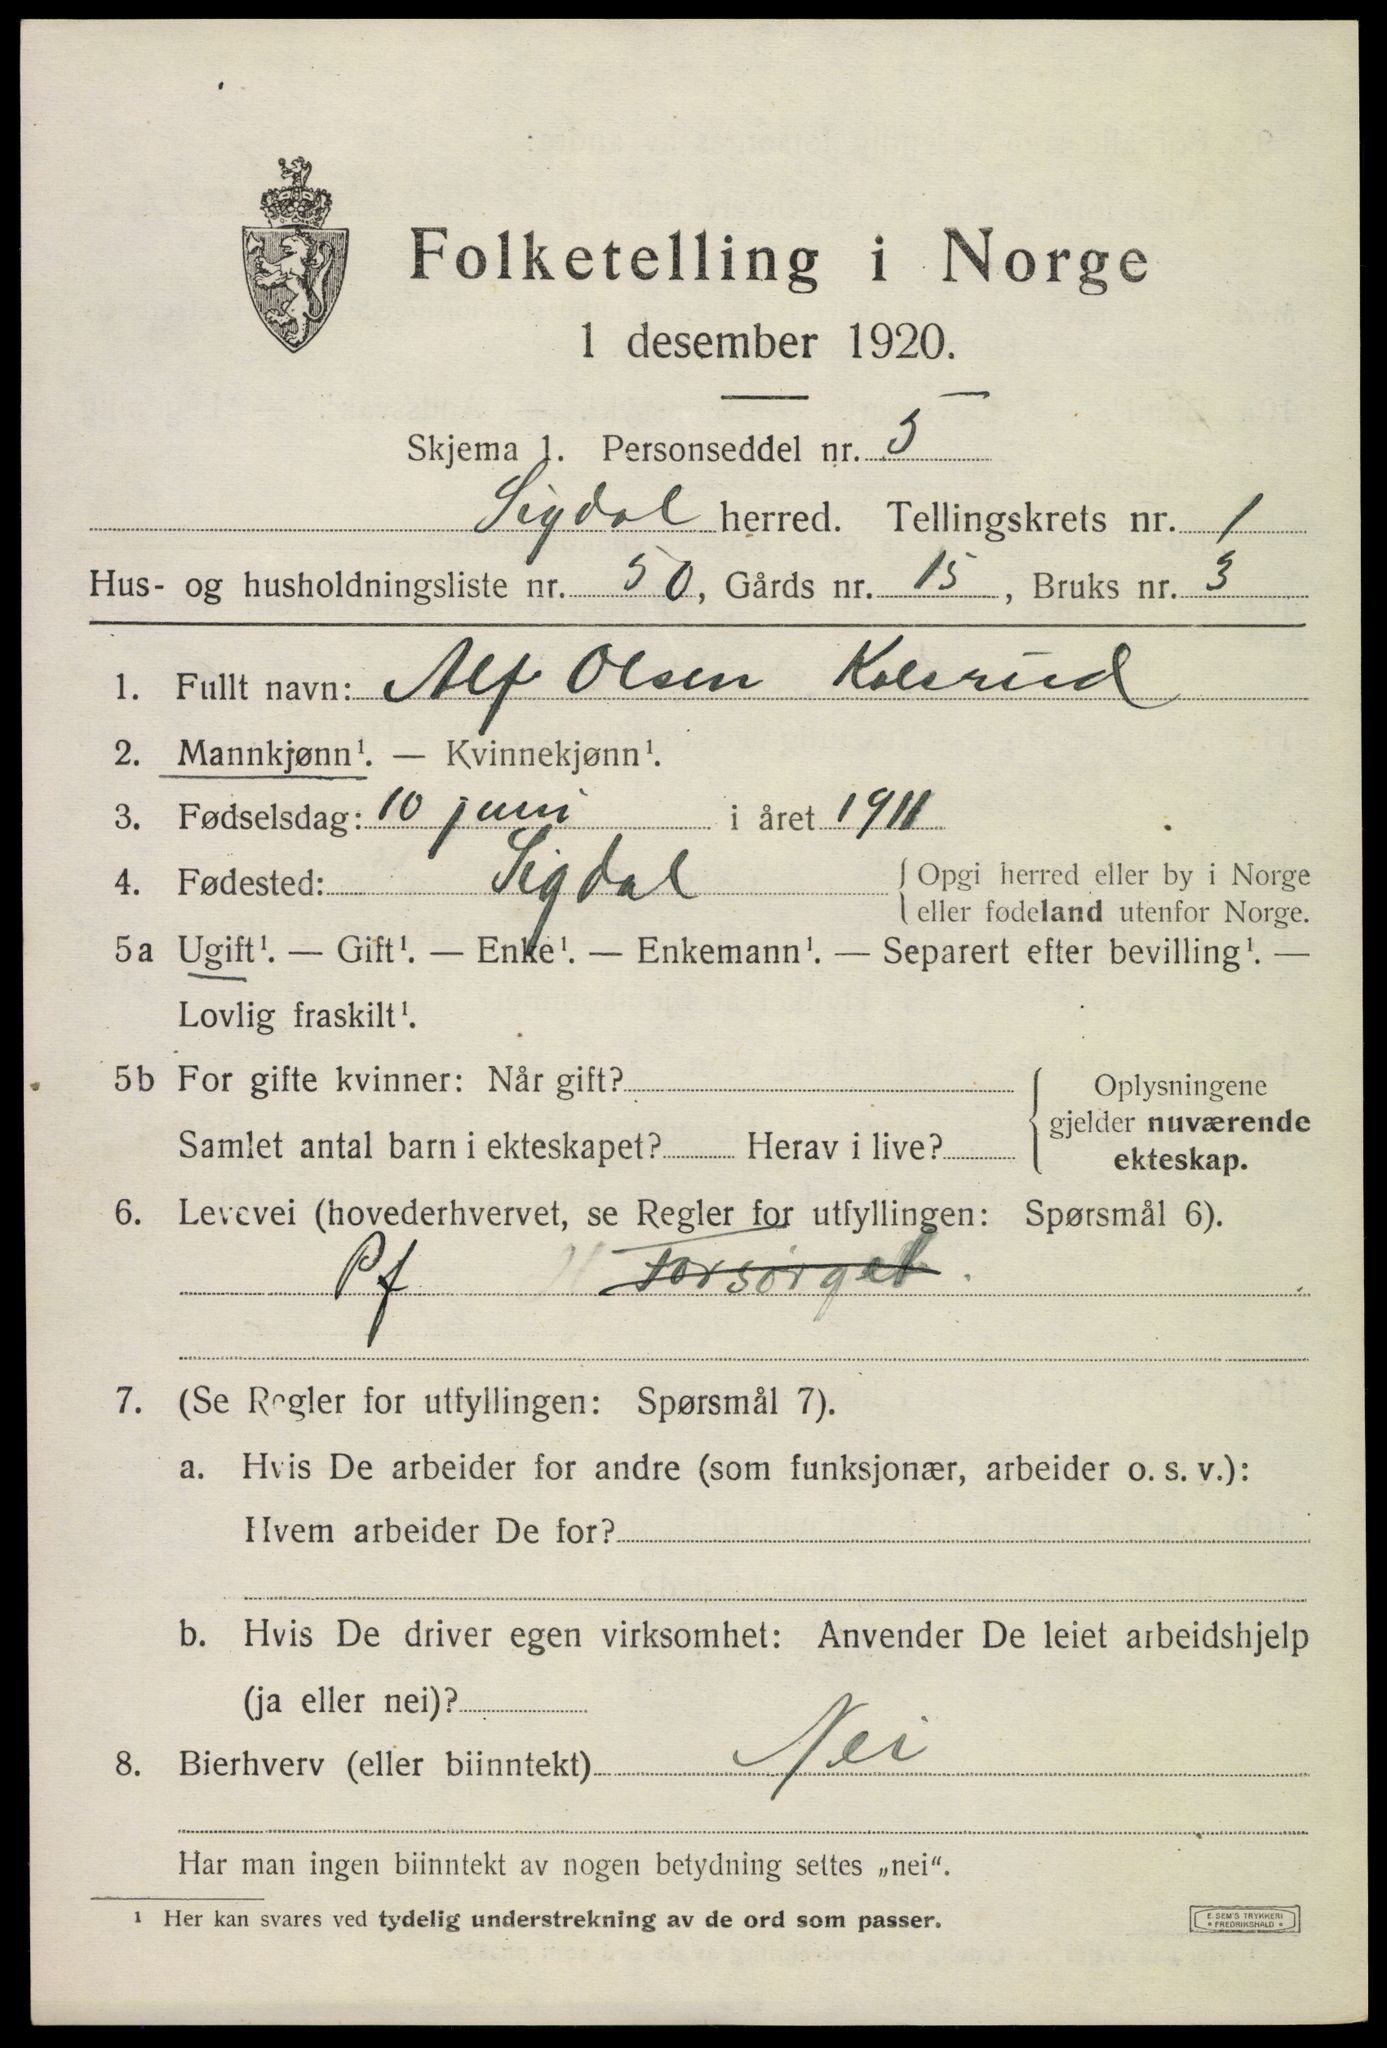 Folketelling i Norge
1 desember 1920.
Skjema 1. Personseddel nr. 5
Sigdal herred. Tellingskrets nr. 1
Hus- og husholdningsliste nr. 50, Gårds nr. 15, Bruks nr. 3
1. Fullt navn: Alf Olsen Kolsrud
2. Mannkjønn¹. — Kvinnekjønn¹.
3. Fødselsdag: 10 juni i året 1911
4. Fødested: Sigdal { Opgi herred eller by i Norge
eller fødeland utenfor Norge.
5a Ugift¹. — Gift¹. — Enke¹. — Enkemann¹. — Separert efter bevilling¹. —
Lovlig fraskilt¹.
5b For gifte kvinner: Når gift?
Samlet antal barn i ekteskapet? Herav i live?
{ Oplysningene
gjelder nuværende
ekteskap.
6. Levevei (hovederhvervet, se Regler for utfyllingen: Spørsmål 6).
Pf Forsørget.
7. (Se Regler for utfyllingen: Spørsmål 7).
a. Hvis De arbeider for andre (som funksjonær, arbeider o. s. v.):
Hvem arbeider De for?
b. Hvis De driver egen virksomhet: Anvender De leiet arbeidshjelp
(ja eller nei)?
8. Bierhverv (eller biinntekt) Nei
Har man ingen biinntekt av nogen betydning settes „nei“.
¹ Her kan svares ved tydelig understrekning av de ord som passer.
E. SEM'S TRYKKERI
FREDRIKSHALD